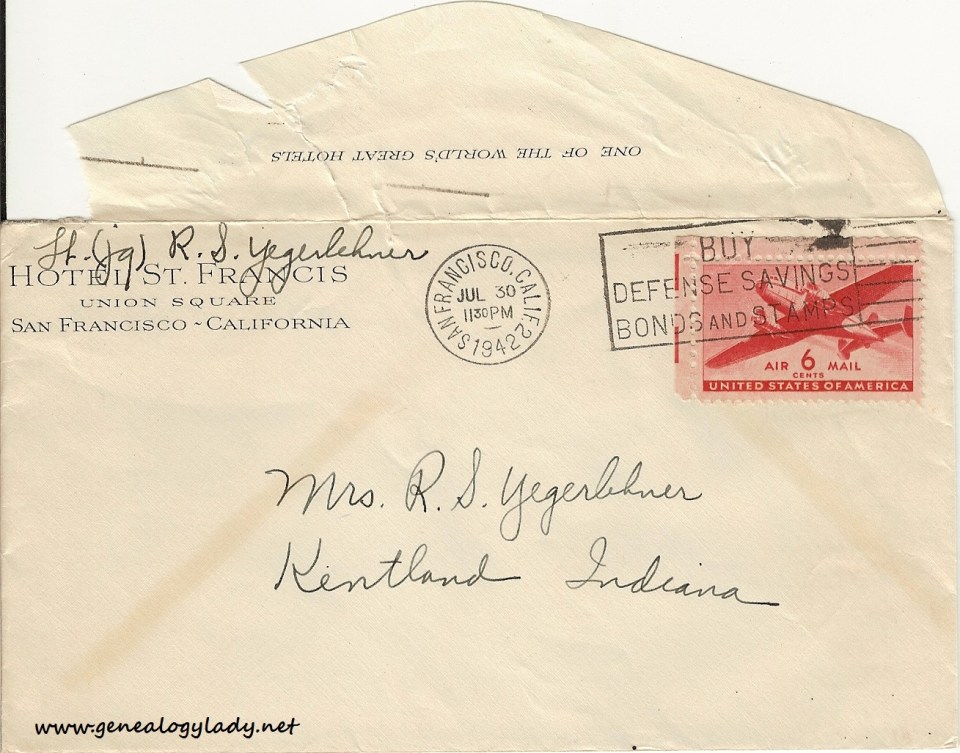 ONE OF THE WORLD'S GREAT HOTELS
Lt. (jg) R. S. Yegerlehner
HOTEL ST. FRANCIS
UNION SQUARE
SAN FRANCISCO ~ CALIFORNIA
SAN FRANCISCO, CALIF. 2
JUL 30
11 30 PM
1942
BUY
DEFENSE SAVINGS
BONDS AND STAMPS
AIR 6 MAIL
CENTS
UNITED STATES OF AMERICA
Mrs. R. S. Yegerlehner
Kentland Indiana
www.genealogylady.net